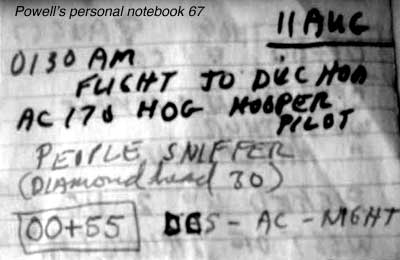 Powell's personal notebook 67
11 AUG
0130 AM
FLIGHT TO DUC HOA
AC 170 HOG HOOPER
PILOT
PEOPLE SNIFFER
(DIAMOND head 30)
00+55 - AC - NIGHT